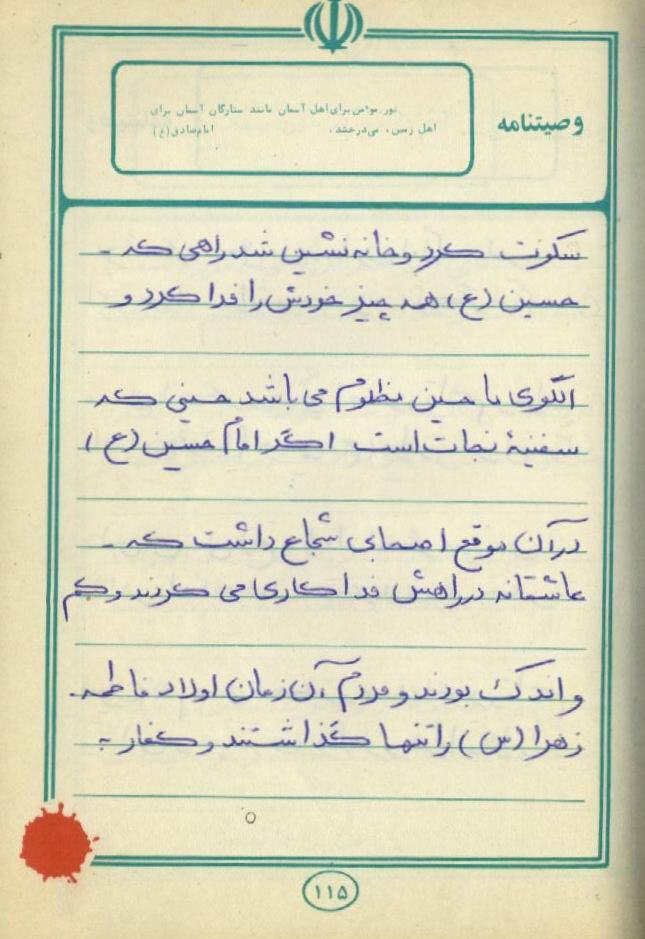 وصیتنامه
نور مؤمن برای اهل آسمان مانند ستارگان آسمان برای
اهل زمین، می‌درخشد. امام صادق (ع)
سکوت کرد و خانه نشین شد راهی که
حسین (ع) همه چیز خودش را فدا کرد و
الگوی ما حسین مظلوم می باشد حسینی که
سفینهٔ نجات است اگر امام حسین (ع)
در آن موقع اصحابی شجاع داشت که
عاشقانه در راهش فداکاری می کردند و کم
و اندک بودند و مردم آن زمان اولاد فاطمه
زهرا (س) را تنها گذاشتند و کفار به
۱۱۵